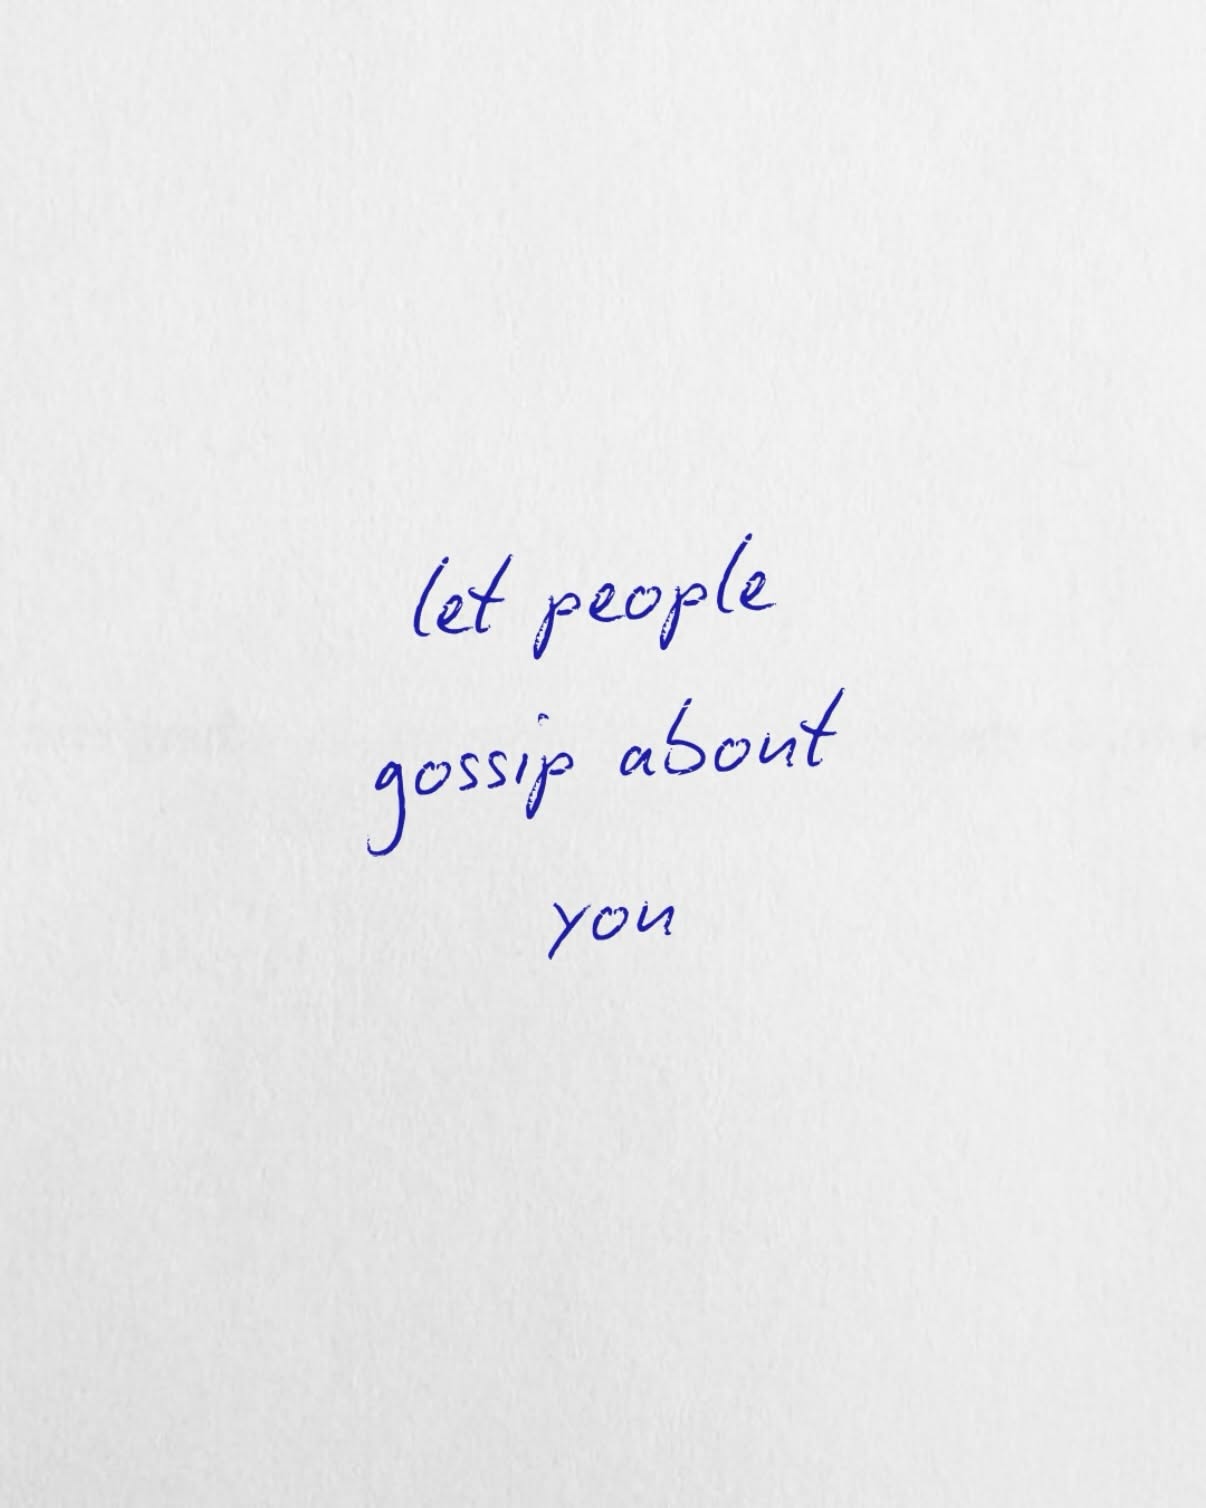 let people
gossip about
you